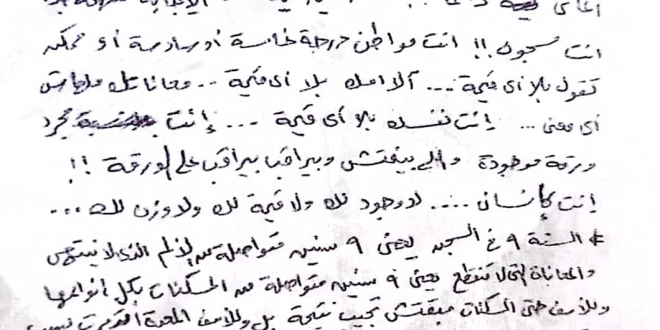 انت مسجون!! انت مواطن درجة خامسة أو سادسة أو ممكن
تقول بلا أى قيمة ... آلامك بلا أى قيمة ... معاناتك ملهاش
أى معنى ... إنت نفسك بلا أى قيمة ... إنت مجرد
ورقة موجودة واللى بيفتش وبيراقب بيراقب على الورقة !!
إنت كإنسان .... لا وجود لك ولا قيمة لك ولا وزن لك ...
* السنة ٩ فى السجن يعنى ٩ سنين متواصلة من الظلم الذى لا ينتهى
والمعاناة التى لا تنقطع يعنى ٩ سنين متواصلة من المسكنات بكل أنواعها
وللأسف حتى المسكنات مبقتش تجيب نتيجة بل وللأسف